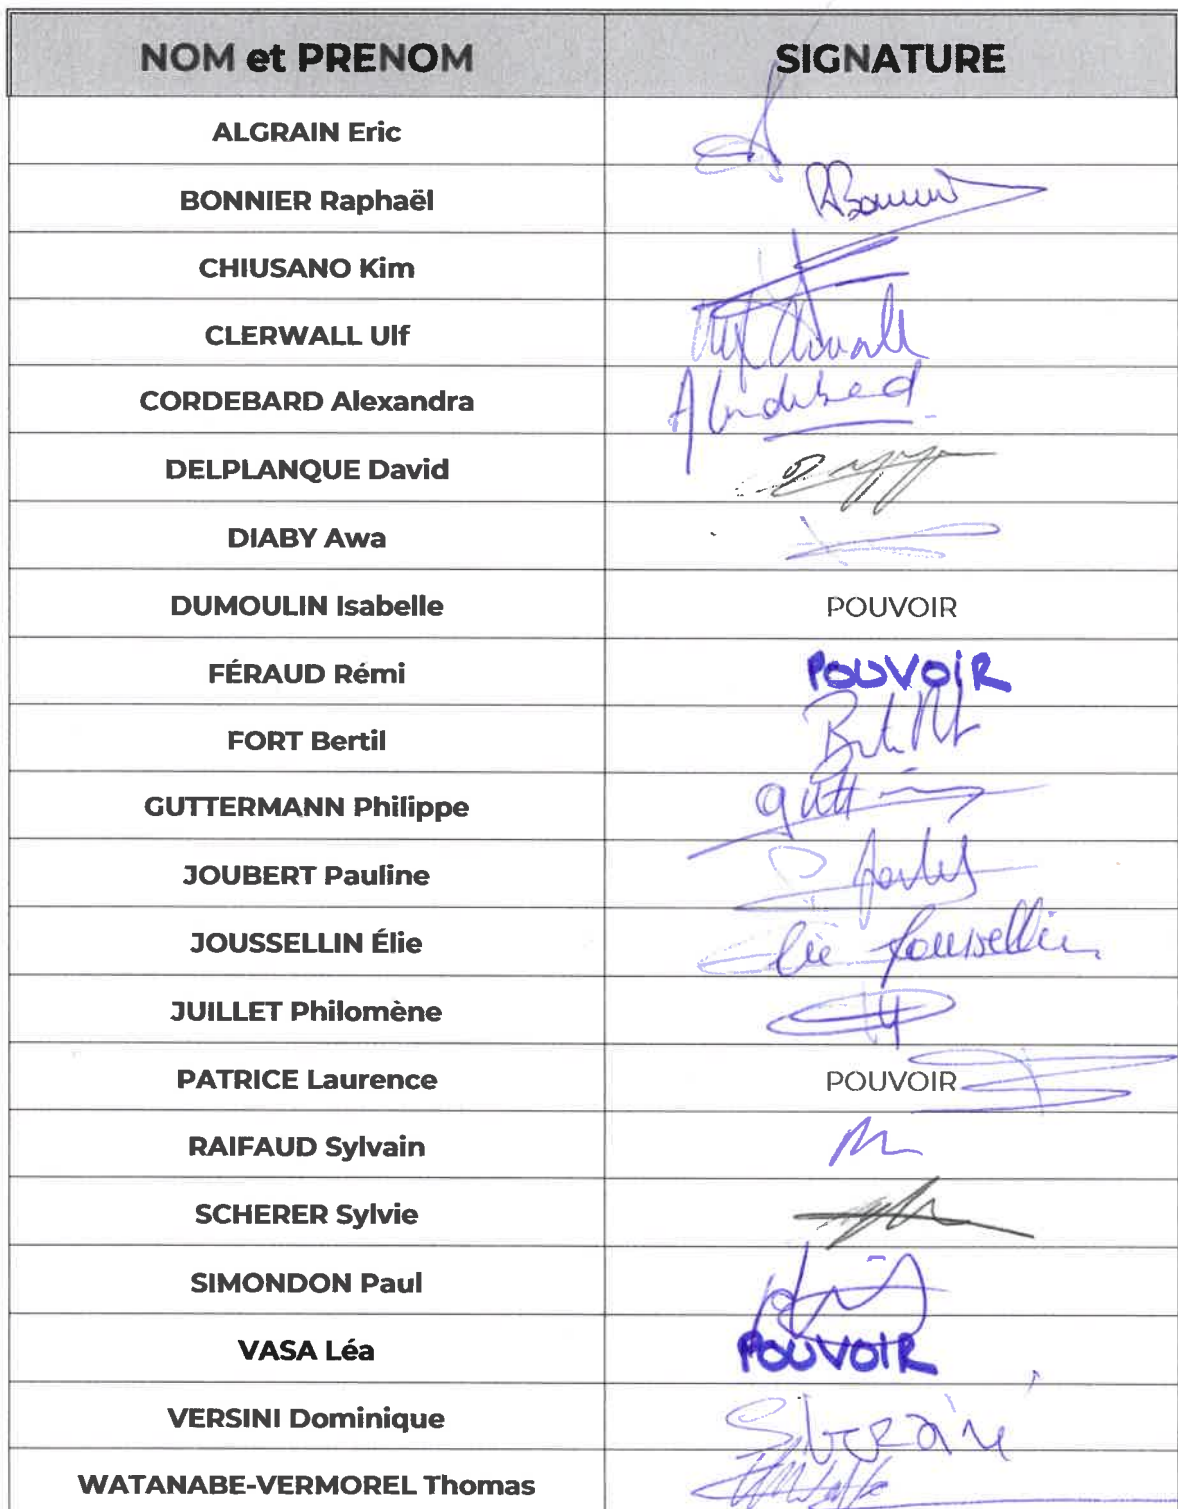 NOM et PRENOM SIGNATURE
ALGRAIN Eric
BONNIER Raphaël RBonnier
CHIUSANO Kim
CLERWALL Ulf
CORDEBARD Alexandra
DELPLANQUE David
DIABY Awa
DUMOULIN Isabelle POUVOIR
FÉRAUD Rémi POUVOIR
FORT Bertil
GUTTERMANN Philippe
JOUBERT Pauline
JOUSSELLIN Élie Élie Joussellin
JUILLET Philomène
PATRICE Laurence POUVOIR
RAIFAUD Sylvain
SCHERER Sylvie
SIMONDON Paul
VASA Léa POUVOIR
VERSINI Dominique
WATANABE-VERMOREL Thomas